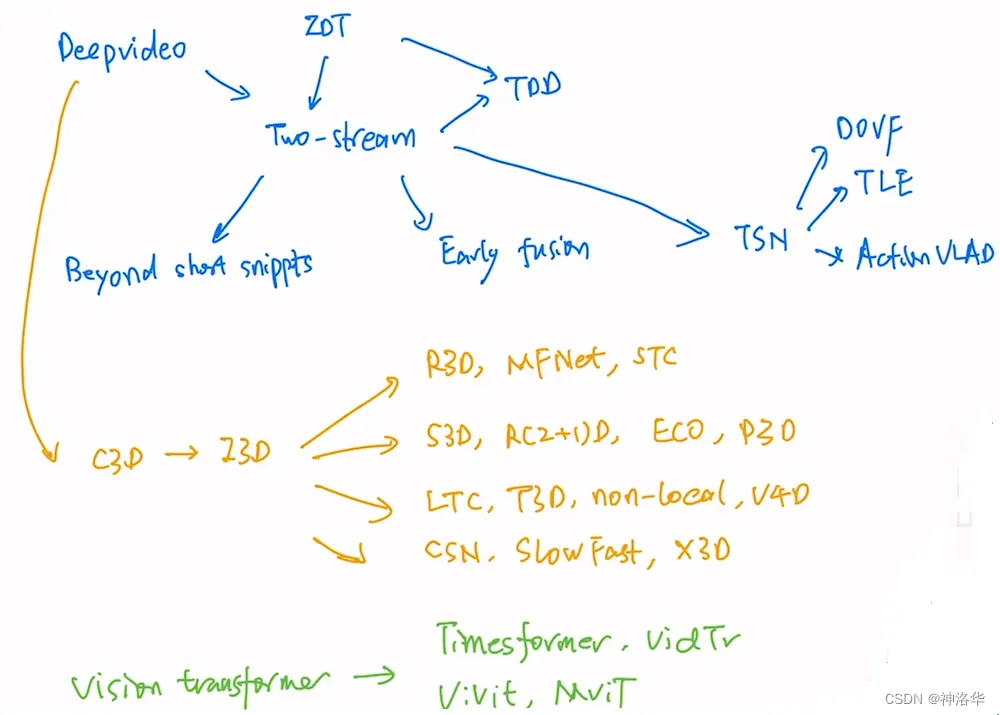 Deepvideo
IDT
TDD
Two-stream
DOVF
TLE
Beyond short snippts
Early fusion
TSN
ActionVLAD
R3D, MFNet, STC
S3D, R(2+1)D, ECO, P3D
C3D → I3D
LTC, T3D, non-local, V4D
CSN. SlowFast, X3D
Timesformer. VidTr
Vision transformer →
ViVit, MViT
CSDN @神洛华